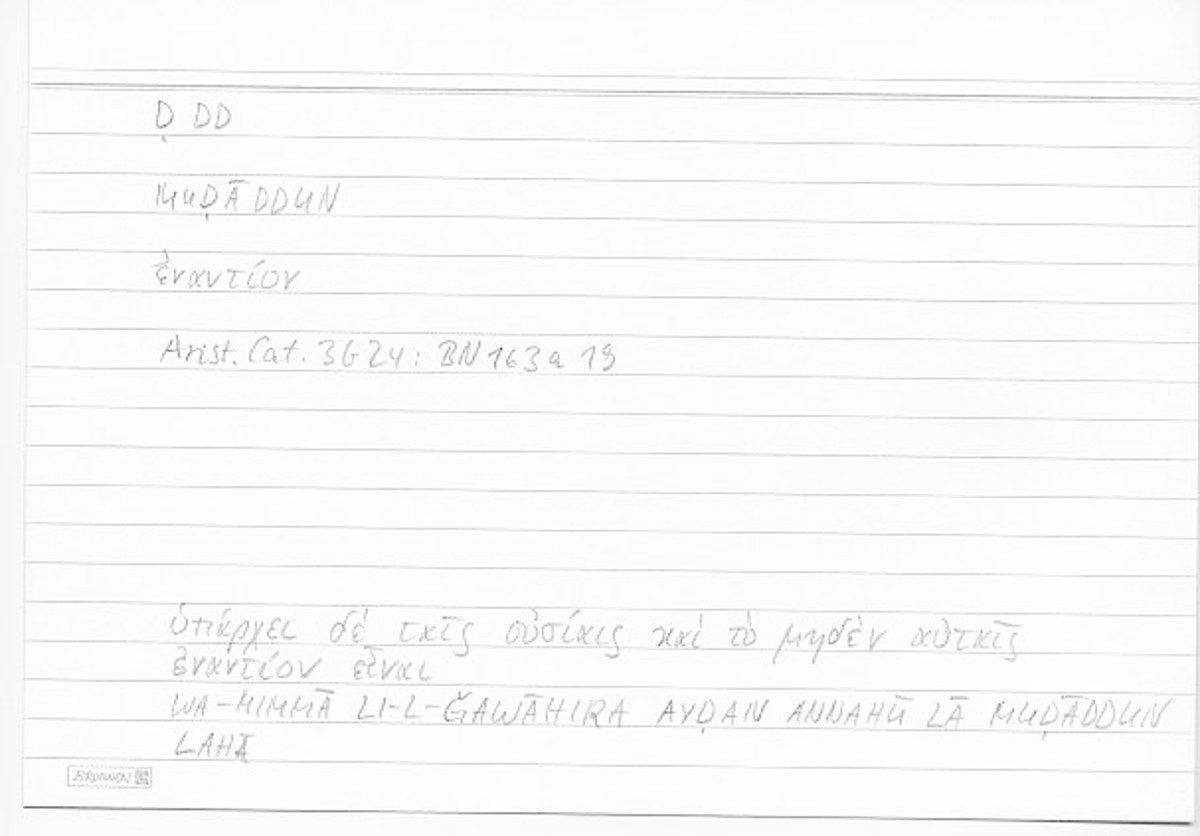 Ḍ DD
MUḌĀDDUN
ἐναντίον
Arist. Cat. 3b24: BN 163a 19
ὑπάρχει δὲ ταῖς οὐσίαις καὶ τὸ μηδὲν αὐταῖς
ἐναντίον εἶναι
WA-MIMMĀ LI-L-ǦAWĀHIRA AYḌAN ANNAHŪ LĀ MUḌĀDDUN
LAHĀ
BRUNNEN